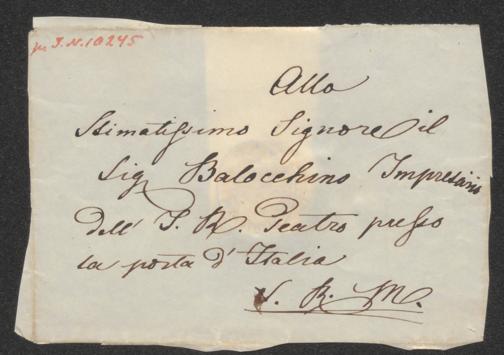 zu I.N. 10245
Allo
Stimatissimo Signore il
Sig Balocchino Impresario
dell' I. R. Teatro presso
la porta d'Italia
S. R. M.